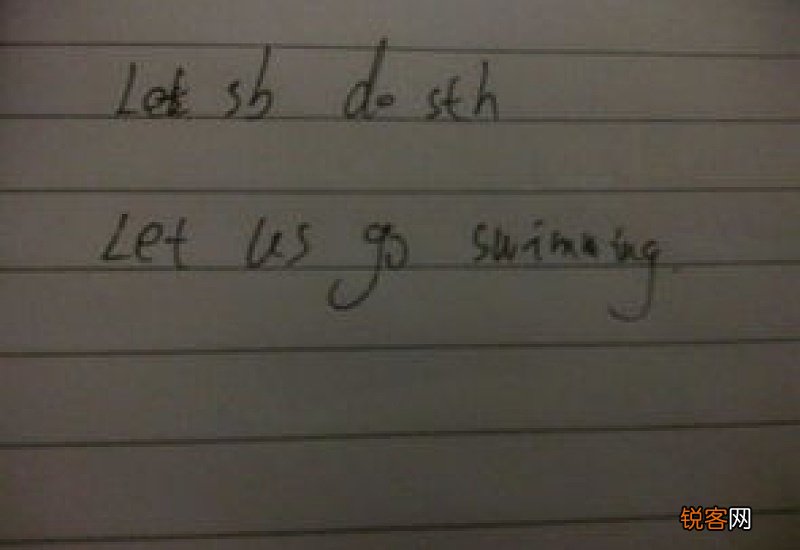 Let sb do sth
Let us go swimming.
锐客网